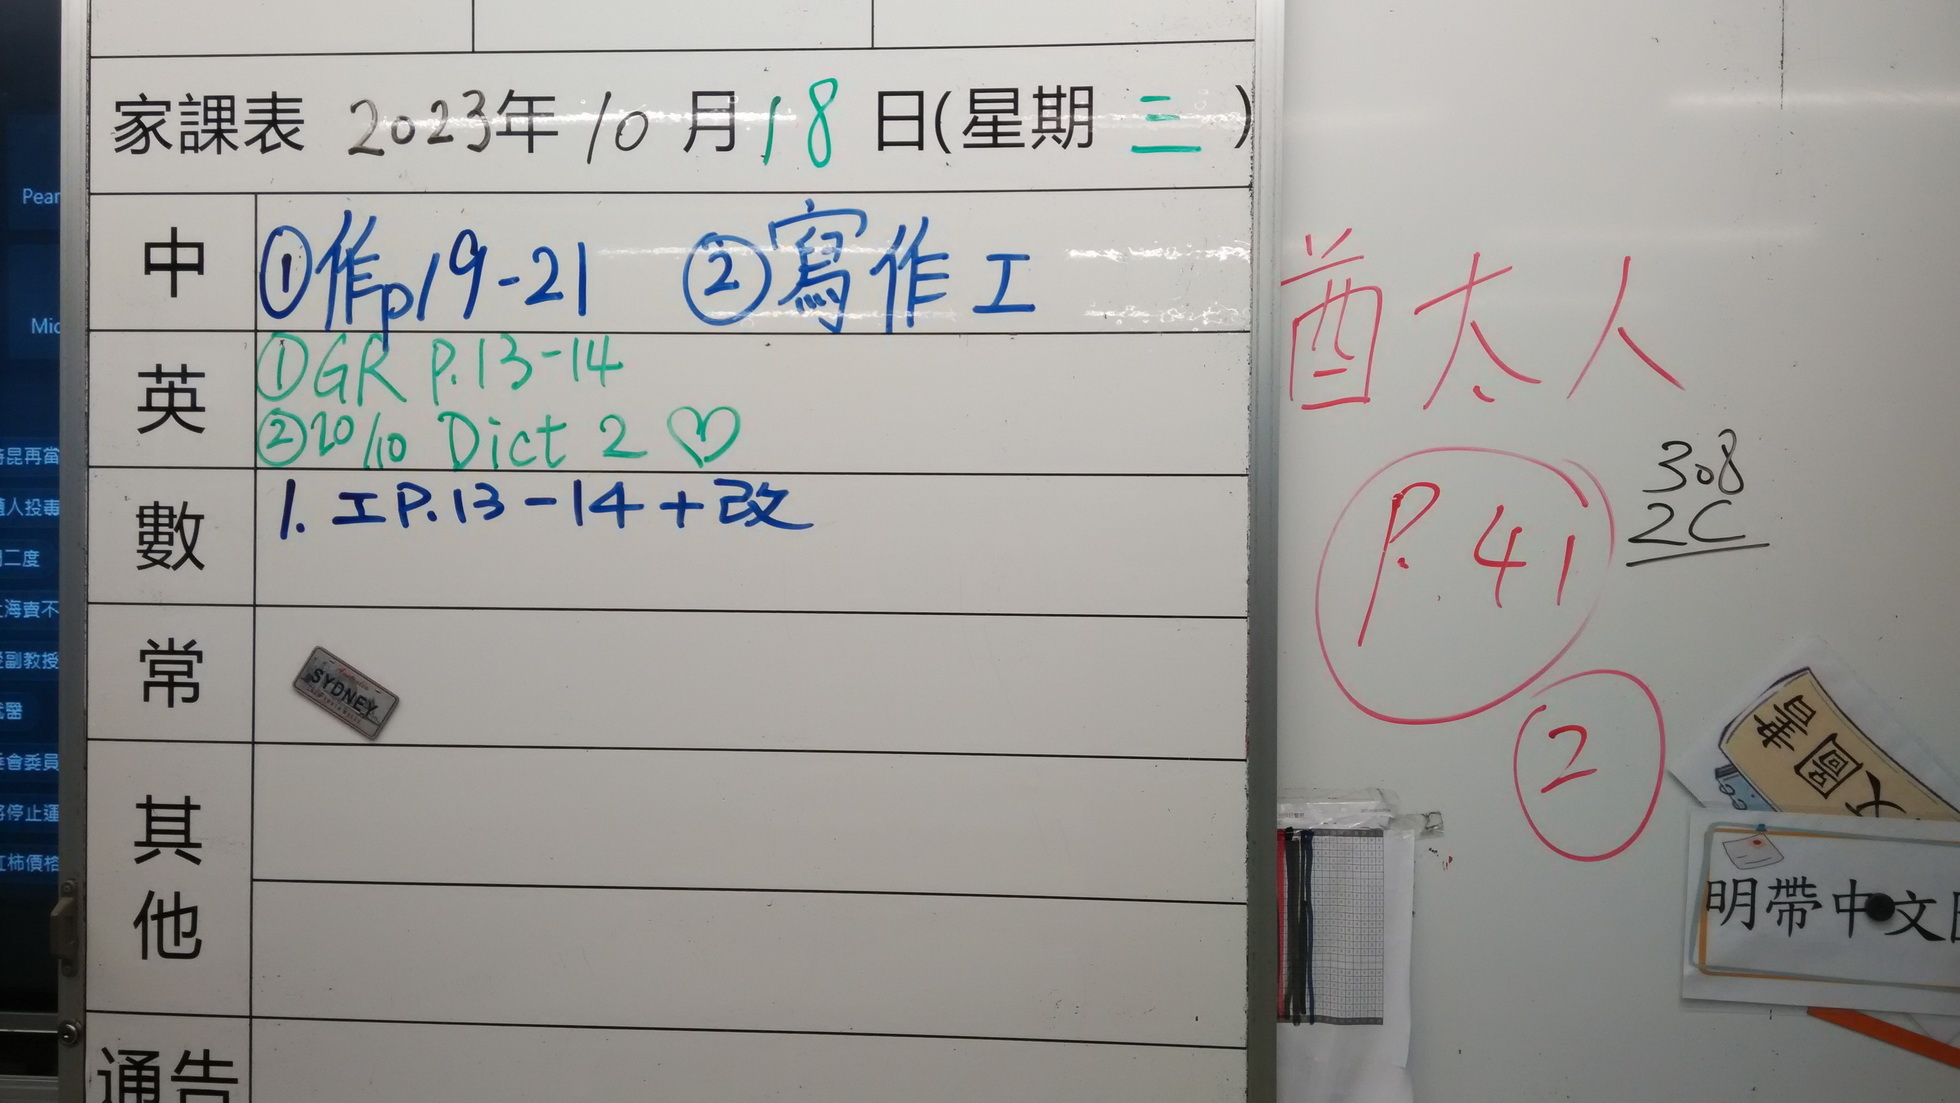 家課表 2023年10月18日(星期三)
中 ①作p19-21 ②寫作工
英 ①GR P.13-14
②20/10 Dict 2 ♡
數 1. 工P.13-14+改
常
SYDNEY
其他
通告
酋太人
308
2C
P.41
2
明帶中文
Pear
Mic
昆再當
人投毒
二度
海賣不
副教授
醫
會委員
停止運
柿價格